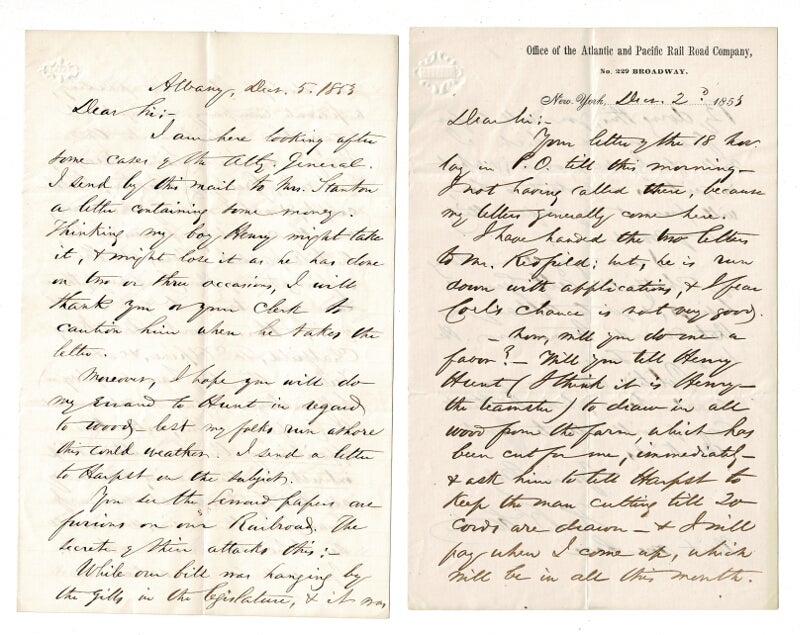 Albany, Dec. 5. 1853
Dear Sir:-
I am here looking after
some cases of the Atty. General.
I send by this mail to Mrs. Stanton
a letter containing some money.
Thinking my boy Henry might take
it, & might lose it as he has done
on two or three occasions, I will
thank you or your Clerk to
caution him when he takes the
letter.
Moreover, I hope you will do
my errand to Hunt in regard
to wood, lest my folks run ashore
this cold weather. I send a letter
to Harpst on the subject.
You see the Seward papers are
furious on our Railroad. The
secret of their attacks this:-
While our bill was hanging by
the gills in the legislature, & it was
Office of the Atlantic and Pacific Rail Road Company,
No. 229 BROADWAY.
New-York, Dec. 2d 1853
Dear Sir:-
Your letter of the 18 Nov.
lay in P.O. till this morning-
I not having called there, because
my letters generally come here.
I have handed the two letters
to Mr. Redfield; but, he is run
down with applications, & I fear
chance is not very good.
- Now, will you do me a
favor? - Will you tell Henry
Hunt (I think it is Henry-
the teamster) to draw in all
wood from the farm, which has
been cut for me, immediately-
& ask him to tell Harpst to
keep the man cutting till 20
cords are drawn - & I will
pay when I come up, which
will be in all this month.